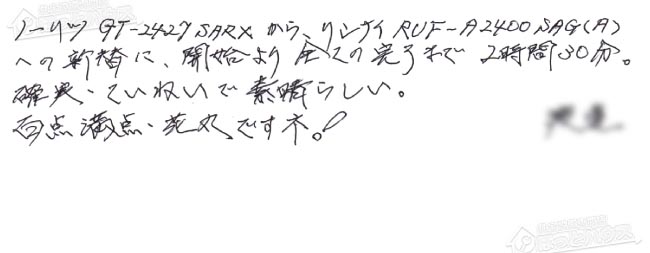 ノーリツ GT-2427SARX から、リンナイ RUF-A2400SAG(A)
への新替に、開始より全ての完了まで 2時間30分。
確実・ていねいで素晴らしい。
百点満点・花丸ですネ。!